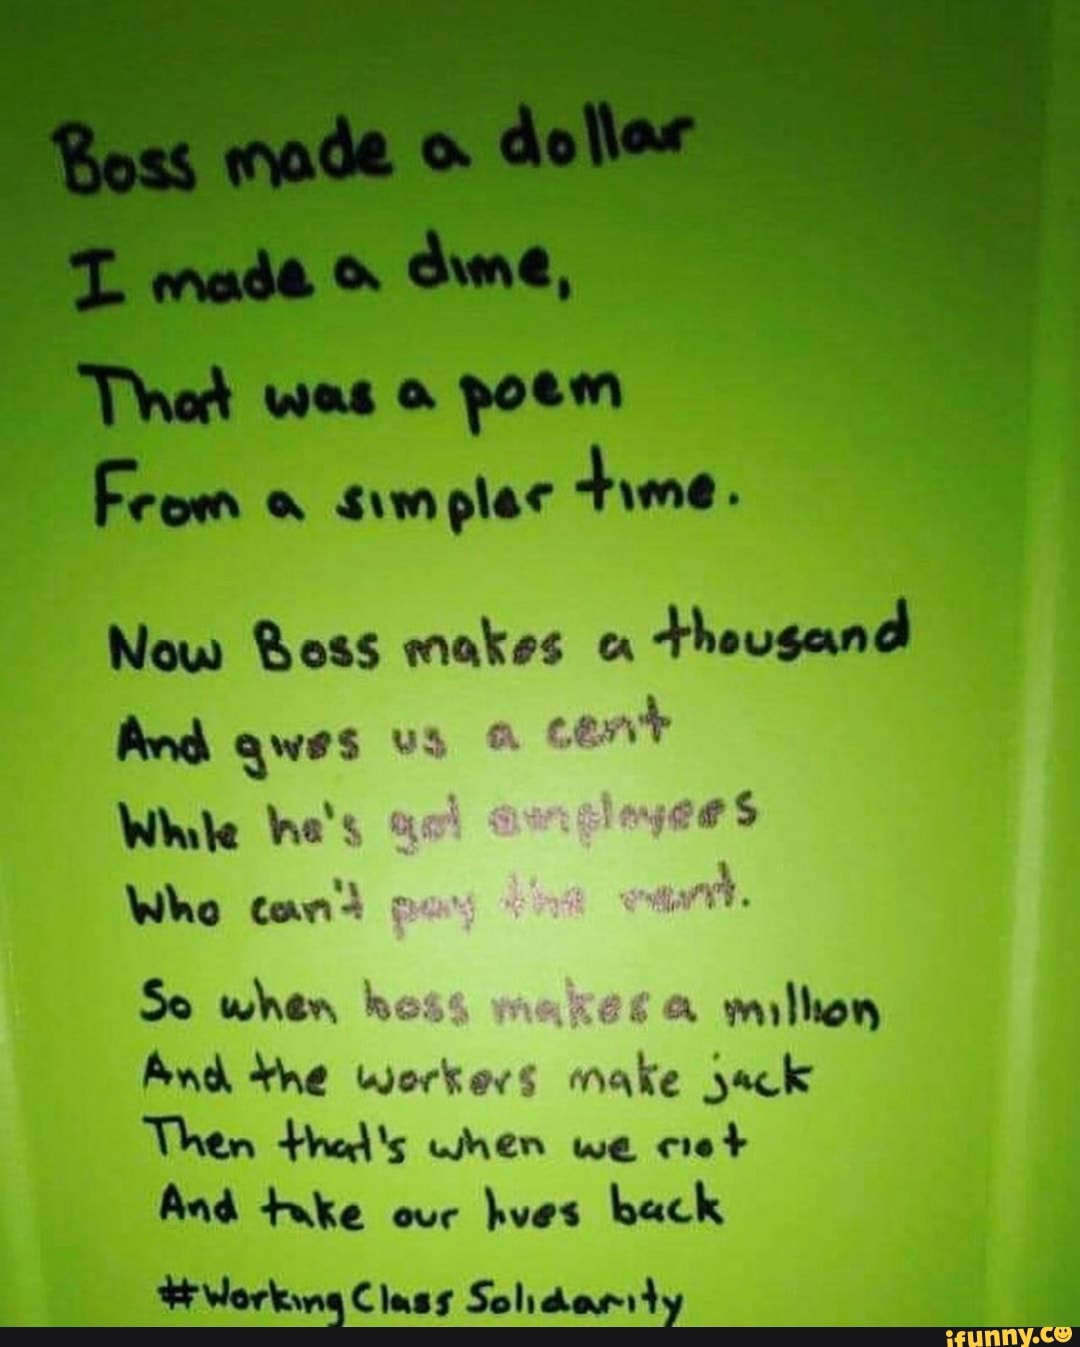 Boss made a dollar
I made a dime,
That was a poem
From a simpler time.
Now Boss makes a thousand
And gives us a cent
While he's got employees
Who can't pay the rent.
So when boss makes a million
And the workers make jack
Then that's when we riot
And take our lives back
#Working Class Solidarity
ifunny.co